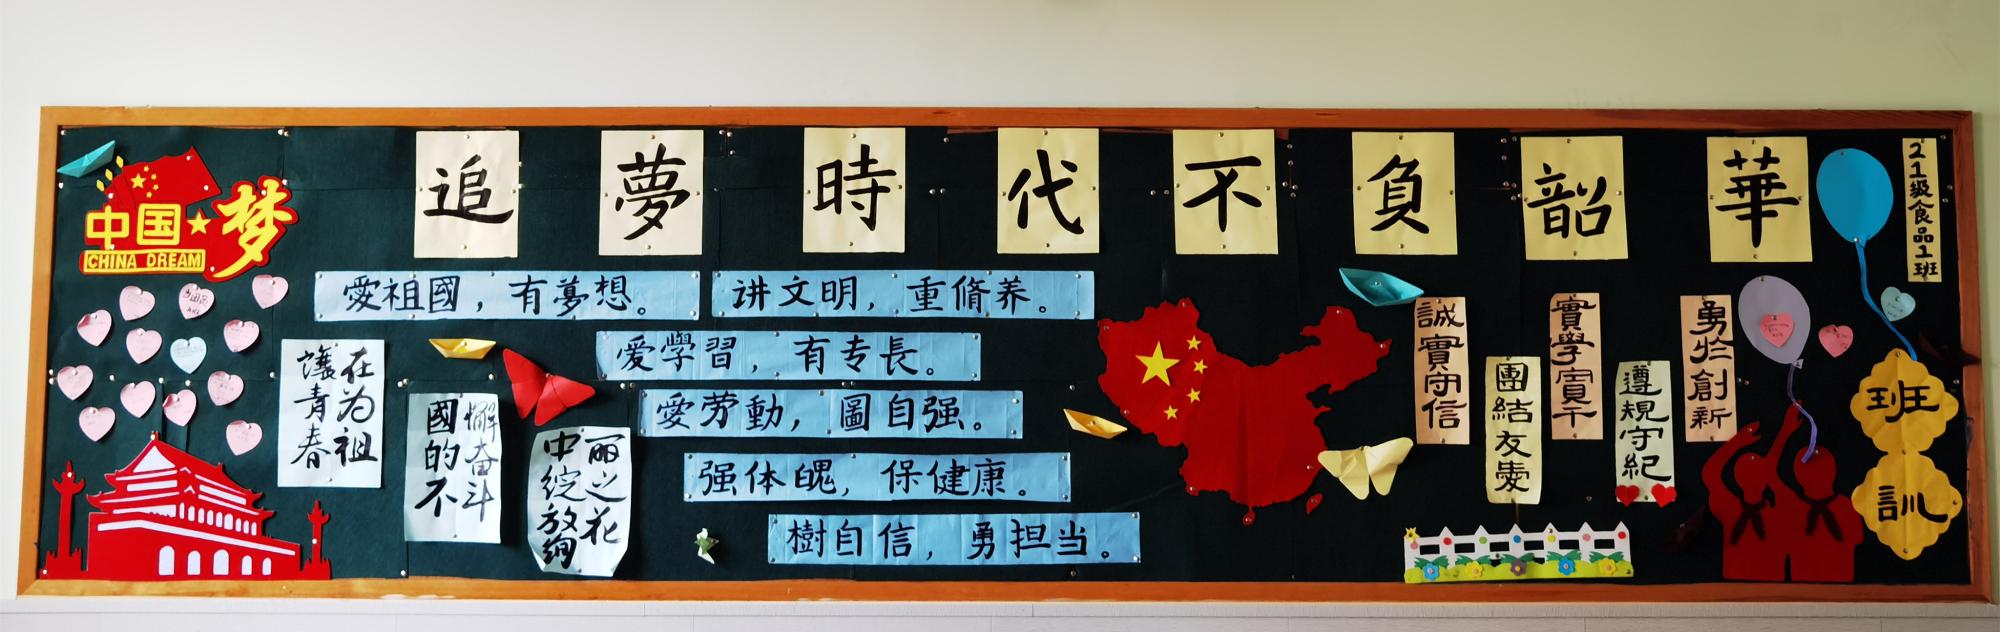 追夢時代不負韶華
中国梦
CHINA DREAM
愛祖國，有夢想。
讲文明，重脩养。
爱學習，有专長。
愛劳動，圖自强。
强体魄，保健康。
樹自信，勇担当。
讓青春
在为祖
國的不
懈奋斗
中绽放绚
丽之花
誠實守信
團結友愛
實學實干
遵規守紀
勇於創新
21級食品1班
班訓